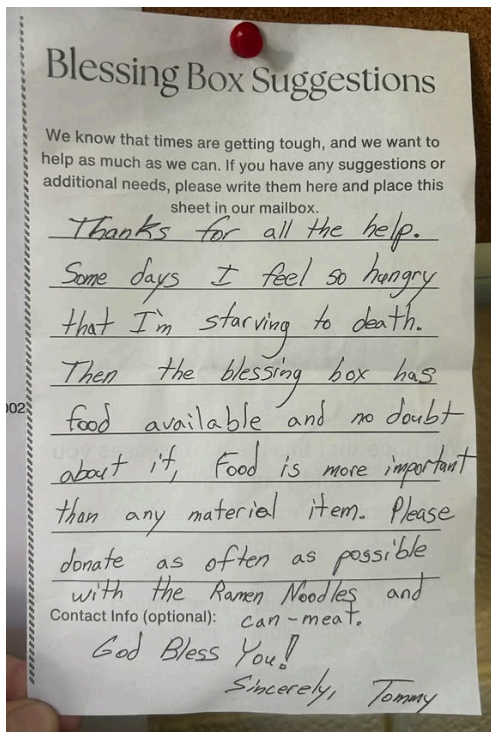 Blessing Box Suggestions
We know that times are getting tough, and we want to
help as much as we can. If you have any suggestions or
additional needs, please write them here and place this
sheet in our mailbox.
Thanks for all the help.
Some days I feel so hungry
that I'm starving to death.
Then the blessing box has
food available and no doubt
about it, Food is more important
than any material item. Please
donate as often as possible
with the Ramen Noodles and
Contact Info (optional): can-meat.
God Bless You!
Sincerely, Tommy
002